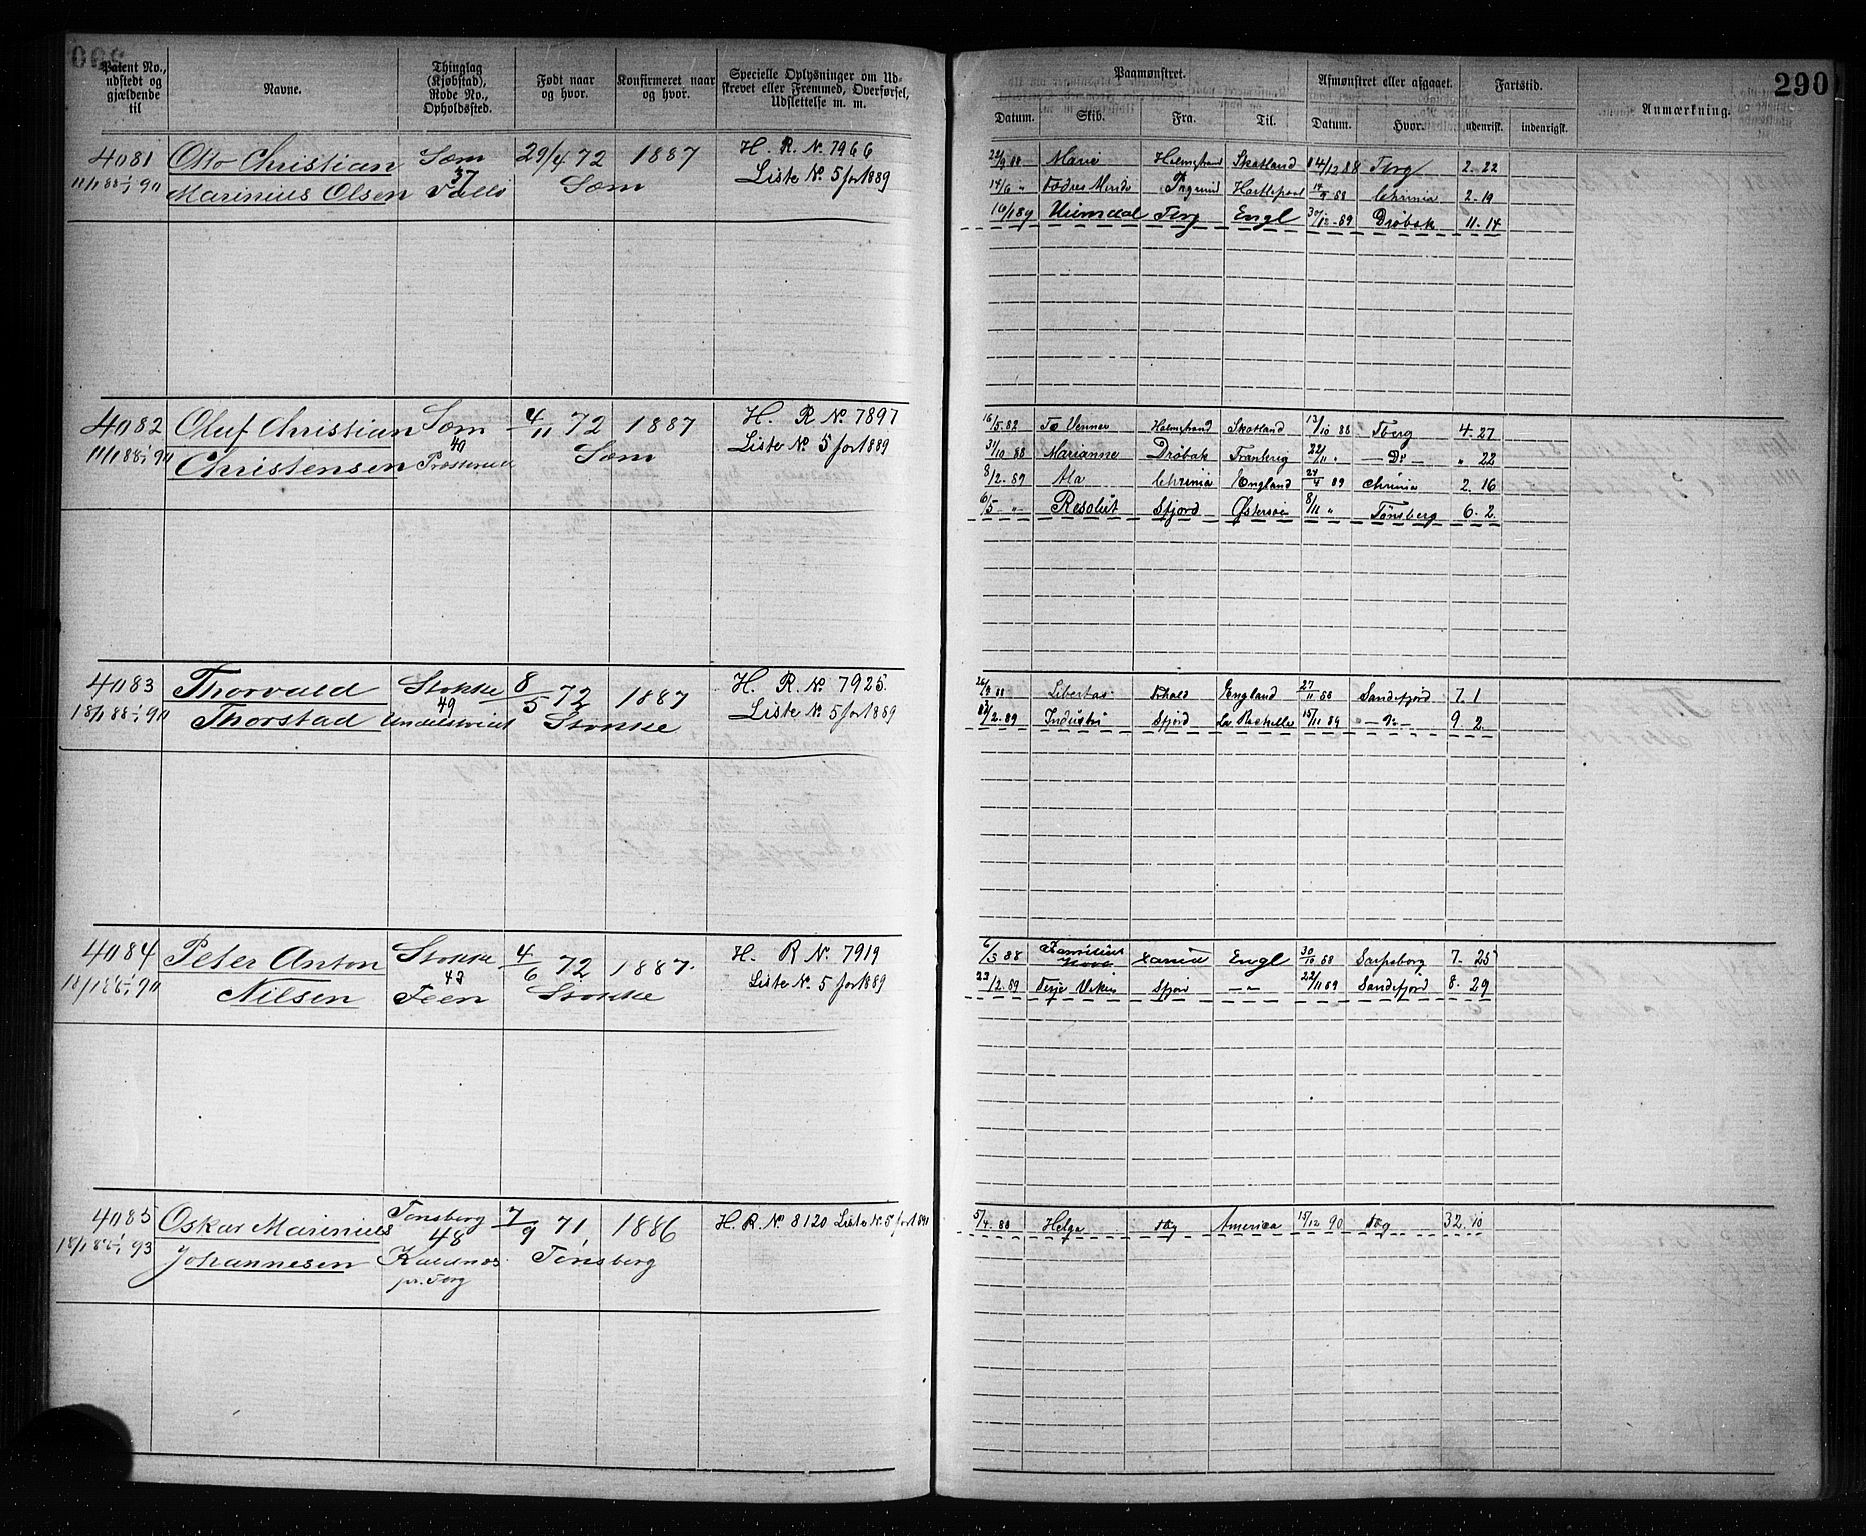 290
Patent No., udstedt og gjældende til
Navne.
Thinglag (Kjøbstad), Rode No., Opholdssted.
Født naar og hvor.
Konfirmeret naar og hvor.
Specielle Oplysninger om Udskrevet eller Fremmed, Overførsel, Udslettelse m. m.
Paamønstret.
Afmønstret eller afgaaet.
Fartstid.
Anmærkning.
Datum. Skib. Fra. Til. Datum. Hvor. udenrigsk. indenrigsk.
4081 Otto Christian Sæm 29/4 72 1887 H. R. No. 7966
11/1 88 1/1 91 Marinius Olsen 37 Vallø Sæm Liste No. 5 for 1889
Marie Holmstrand Skotland 4/12 88 Tbrg 2. 22
14/6 " Hartlepool 88 Chrinia 2. 19
16/1 89 Heimdal Tbrg Engl 30/12 89 Drøbak 11. 14
4082 Oluf Christian Sæm 4/11 72 1887 H. R. No. 7897
11/1 88 1/1 91 Christensen 49 Sæm Liste No. 5 for 1889
16/5 Venner Holmstrand Skotland 13/10 88 Tberg 4. 27
31/10 88 Marianne Drøbak 22/11 " Do " 22
8/2 89 Chrinia England 24/4 89 Chrinia 2. 16
6/5 " Resolut Sfjord Østersøen 8/11 " Tønsberg 6. 2.
4083 Thorvald Stokke 8/5 72 1887 H. R. No. 7925.
18/1 88 1/1 91 Thorstad 49 Stokke Liste No. 5 for 1889
88 Libertas England 27/11 88 Sandefjord 7. 1
2. 89 Industri Sfjord La Rochelle 15/11 89 " Do 9. 2.
4084 Peter Anton Stokke 4/6 72 1887. H R No. 7919
18/1 88 1/1 91 Nilsen 42 Feen Stokke Liste No. 5 for 1889
6/3 88 Familiens Engl 30/10 88 Sarpsborg 7. 25
2. 89 Terje Viken Sfjord " 22/11 89 Sandefjord 8. 29
4085 Oskar Marinius Tønsberg 7/9 71 1886 H. R. No 8120 Liste No. 5 for 1891
18/1 88 1/1 93 Johannesen 48 Kaldnæs pr. Tbrg Tønsberg
5/4 88 Helga Tbg America 15/12 90 Tbg 32. 10